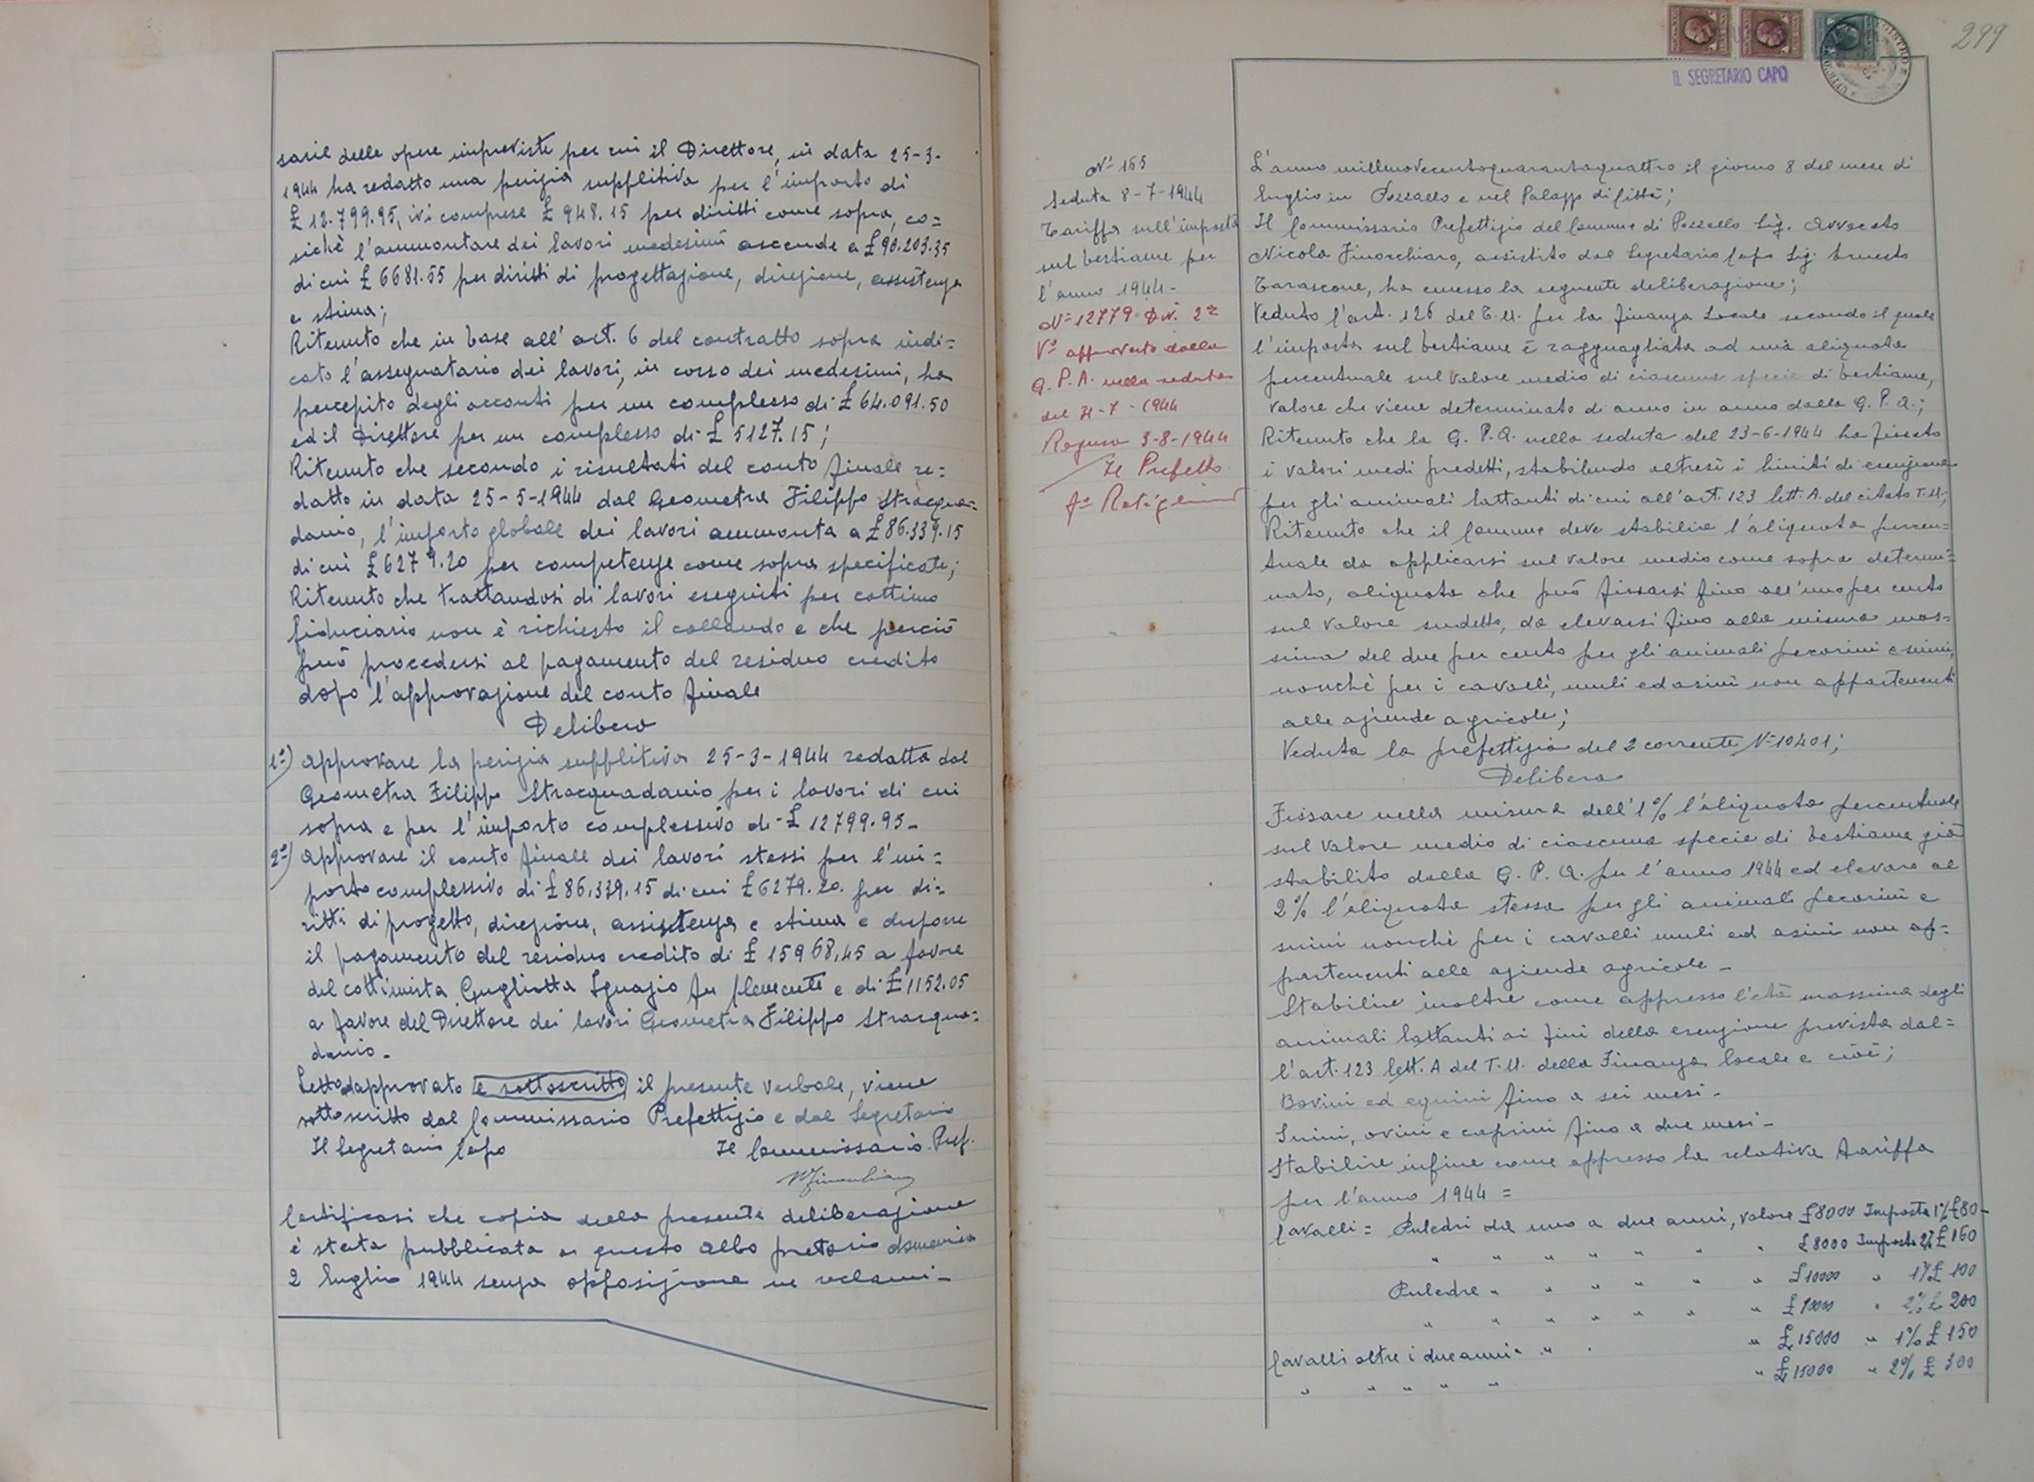 sarie delle opere impreviste per cui il Direttore, in data 25-3-
1944 ha redatto una perizia suppletiva per l'importo di
£ 12.799.95, ivi comprese £ 948.15 per diritti come sopra, co=
sichè l'ammontare dei lavori medesimi ascende a £ 90.203.35
di cui £ 6681.55 per diritti di progettazione, direzione, assistenza
e stima;
Ritenuto che in base all'art. 6 del contratto sopra indi=
cato l'assegnatario dei lavori, in corso dei medesimi, ha
percepito degli acconti per un complesso di £ 64.091.50
ed il Direttore per un complesso di £ 5127.15;
Ritenuto che secondo i risultati del conto finale re=
datto in data 25-5-1944 dal Geometra Filippo Stracqua=
danio, l'importo globale dei lavori ammonta a £ 86.339.15
di cui £ 6279.20 per competenze come sopra specificate;
Ritenuto che trattandosi di lavori eseguiti per cottimo
fiduciario non è richiesto il collaudo e che perciò
può procedersi al pagamento del residuo credito
dopo l'approvazione del conto finale
Delibera
1°) approvare la perizia suppletiva 25-3-1944 redatta dal
Geometra Filippo Stracquadanio per i lavori di cui
sopra e per l'importo complessivo di £ 12799.95-
2°) approvare il conto finale dei lavori stessi per l'im=
porto complessivo di £ 86.339.15 di cui £ 6279.20. per di=
ritti di progetto, direzione, assistenza e stima e disporre
il pagamento del residuo credito di £ 15968,45 a favore
del cottimista Gugliotta Ignazio fu Clemente e di £ 1152.05
a favore del Direttore dei lavori Geometra Filippo Stracqua=
danio.-
Letto ed approvato e sottoscritto il presente verbale, viene
sottoscritto dal Commissario Prefettizio e dal Segretario
Il Segretario Capo Il Commissario Pref.
Certificasi che copia della presente deliberazione
è stata pubblicata a questo albo pretorio domenica
2 luglio 1944 senza opposizione ne reclami-
299
IL SEGRETARIO CAPO
N° 165
Seduta 8-7-1944
Tariffa sull'imposta
sul bestiame per
l'anno 1944-
N° 12779 Div. 2ª
V° approvato dalla
G. P. A. nella seduta
del 31-7-1944
Ragusa 3-8-1944
Il Prefetto
L'anno millenovecentoquarantaquattro il giorno 8 del mese di
luglio in Pozzallo e nel Palazzo di Città;
Il Commissario Prefettizio del Comune di Pozzallo Sig. Avvocato
Nicola Finocchiaro, assistito dal Segretario Capo Sig. Ernesto
Tarascone, ha emesso la seguente deliberazione;
Veduto l'art. 126 del T.U. per la finanza Locale secondo il quale
l'imposta sul bestiame è ragguagliata ad una aliquota
percentuale sul valore medio di ciascuna specie di bestiame,
valore che viene determinato di anno in anno dalla G. P. A.;
Ritenuto che la G. P. A. nella seduta del 23-6-1944 ha fissato
i valori medi predetti, stabilendo altresì i limiti di esenzione
per gli animali lattanti di cui all'art. 123 lett. A. del citato T.U;
Ritenuto che il Comune deve stabilire l'aliquota percen=
tuale da applicarsi sul valore medio come sopra determi=
nato, aliquota che può fissarsi fino all'uno per cento
sul valore sudetto, da elevarsi fino alla misura mas=
sima del due per cento per gli animali pecorini e suini,
nonchè per i cavalli, muli ed asini non appartenenti
alle aziende agricole;
Veduta la prefettizia del 2 corrente N° 10401;
Delibera
Fissare nella misura dell'1% l'aliquota percentuale
sul valore medio di ciascuna specie di bestiame già
stabilito dalla G. P. A. per l'anno 1944 ed elevare al
2% l'aliquota stessa per gli animali pecorini e
suini nonchè per i cavalli muli ed asini non ap=
partenenti alle aziende agricole-
Stabilire inoltre come appresso l'età massima degli
animali lattanti ai fini della esenzione prevista dal=
l'art. 123 lett. A del T.U. della Finanza locale e cioè;
Bovini ed equini fino a sei mesi-
Suini, ovini e caprini fino a due mesi-
Stabilire infine come appresso la relativa tariffa
per l'anno 1944=
Cavalli= Puledri da uno a due anni, valore £ 8000 Imposta 1% £ 80-
" " " " " " " " £ 8000 Imposta 2% £ 160
Puledre " " " " " " " £ 10000 " 1% £ 100
" " " " " " " " £ 10000 " 2% £ 200
Cavalli oltre i due anni " " " " £ 15000 " 1% £ 150
" " " " " " £ 15000 " 2% £ 300